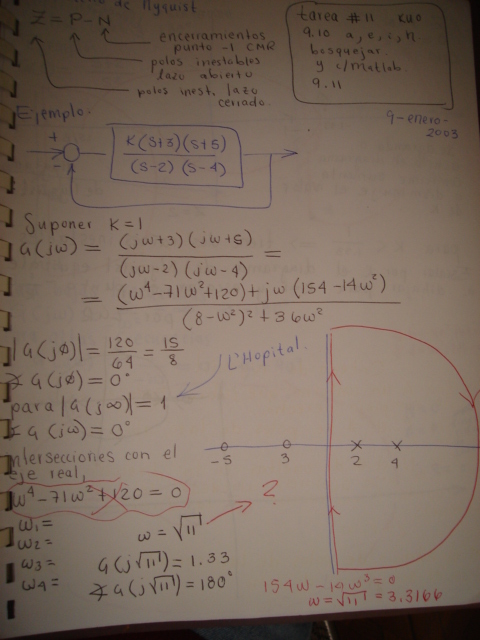 de Nyquist
Z = P - N
encerramientos
punto -1 CMR
polos inestables
lazo abierto
polos inest. lazo
cerrado.
tarea #11 KUO
9.10 a, e, i, h
bosquejar
y c/matlab.
9.11
9-enero-
2003
Ejemplo.
+
-
K(S+3)(S+5)
(S-2)(S-4)
Suponer K=1
G(jω) = (jω+3)(jω+5) =
(jω-2)(jω-4)
= (ω⁴-71ω²+120)+jω(154-14ω²)
(8-ω²)²+36ω²
|G(jø)| = 120 = 15
64 8
∡G(jø) = 0°
L'Hopital.
para |G(j∞)| = 1
∡G(jω) = 0°
Intersecciones con el
eje real,
ω⁴-71ω²+120=0
-5 3 2 4
ω1=
ω2=
ω3=
ω4=
ω = √11
?
G(j√11) = 1.33
∡G(j√11) = 180°
154ω-14ω³=0
ω=√11=3.3166